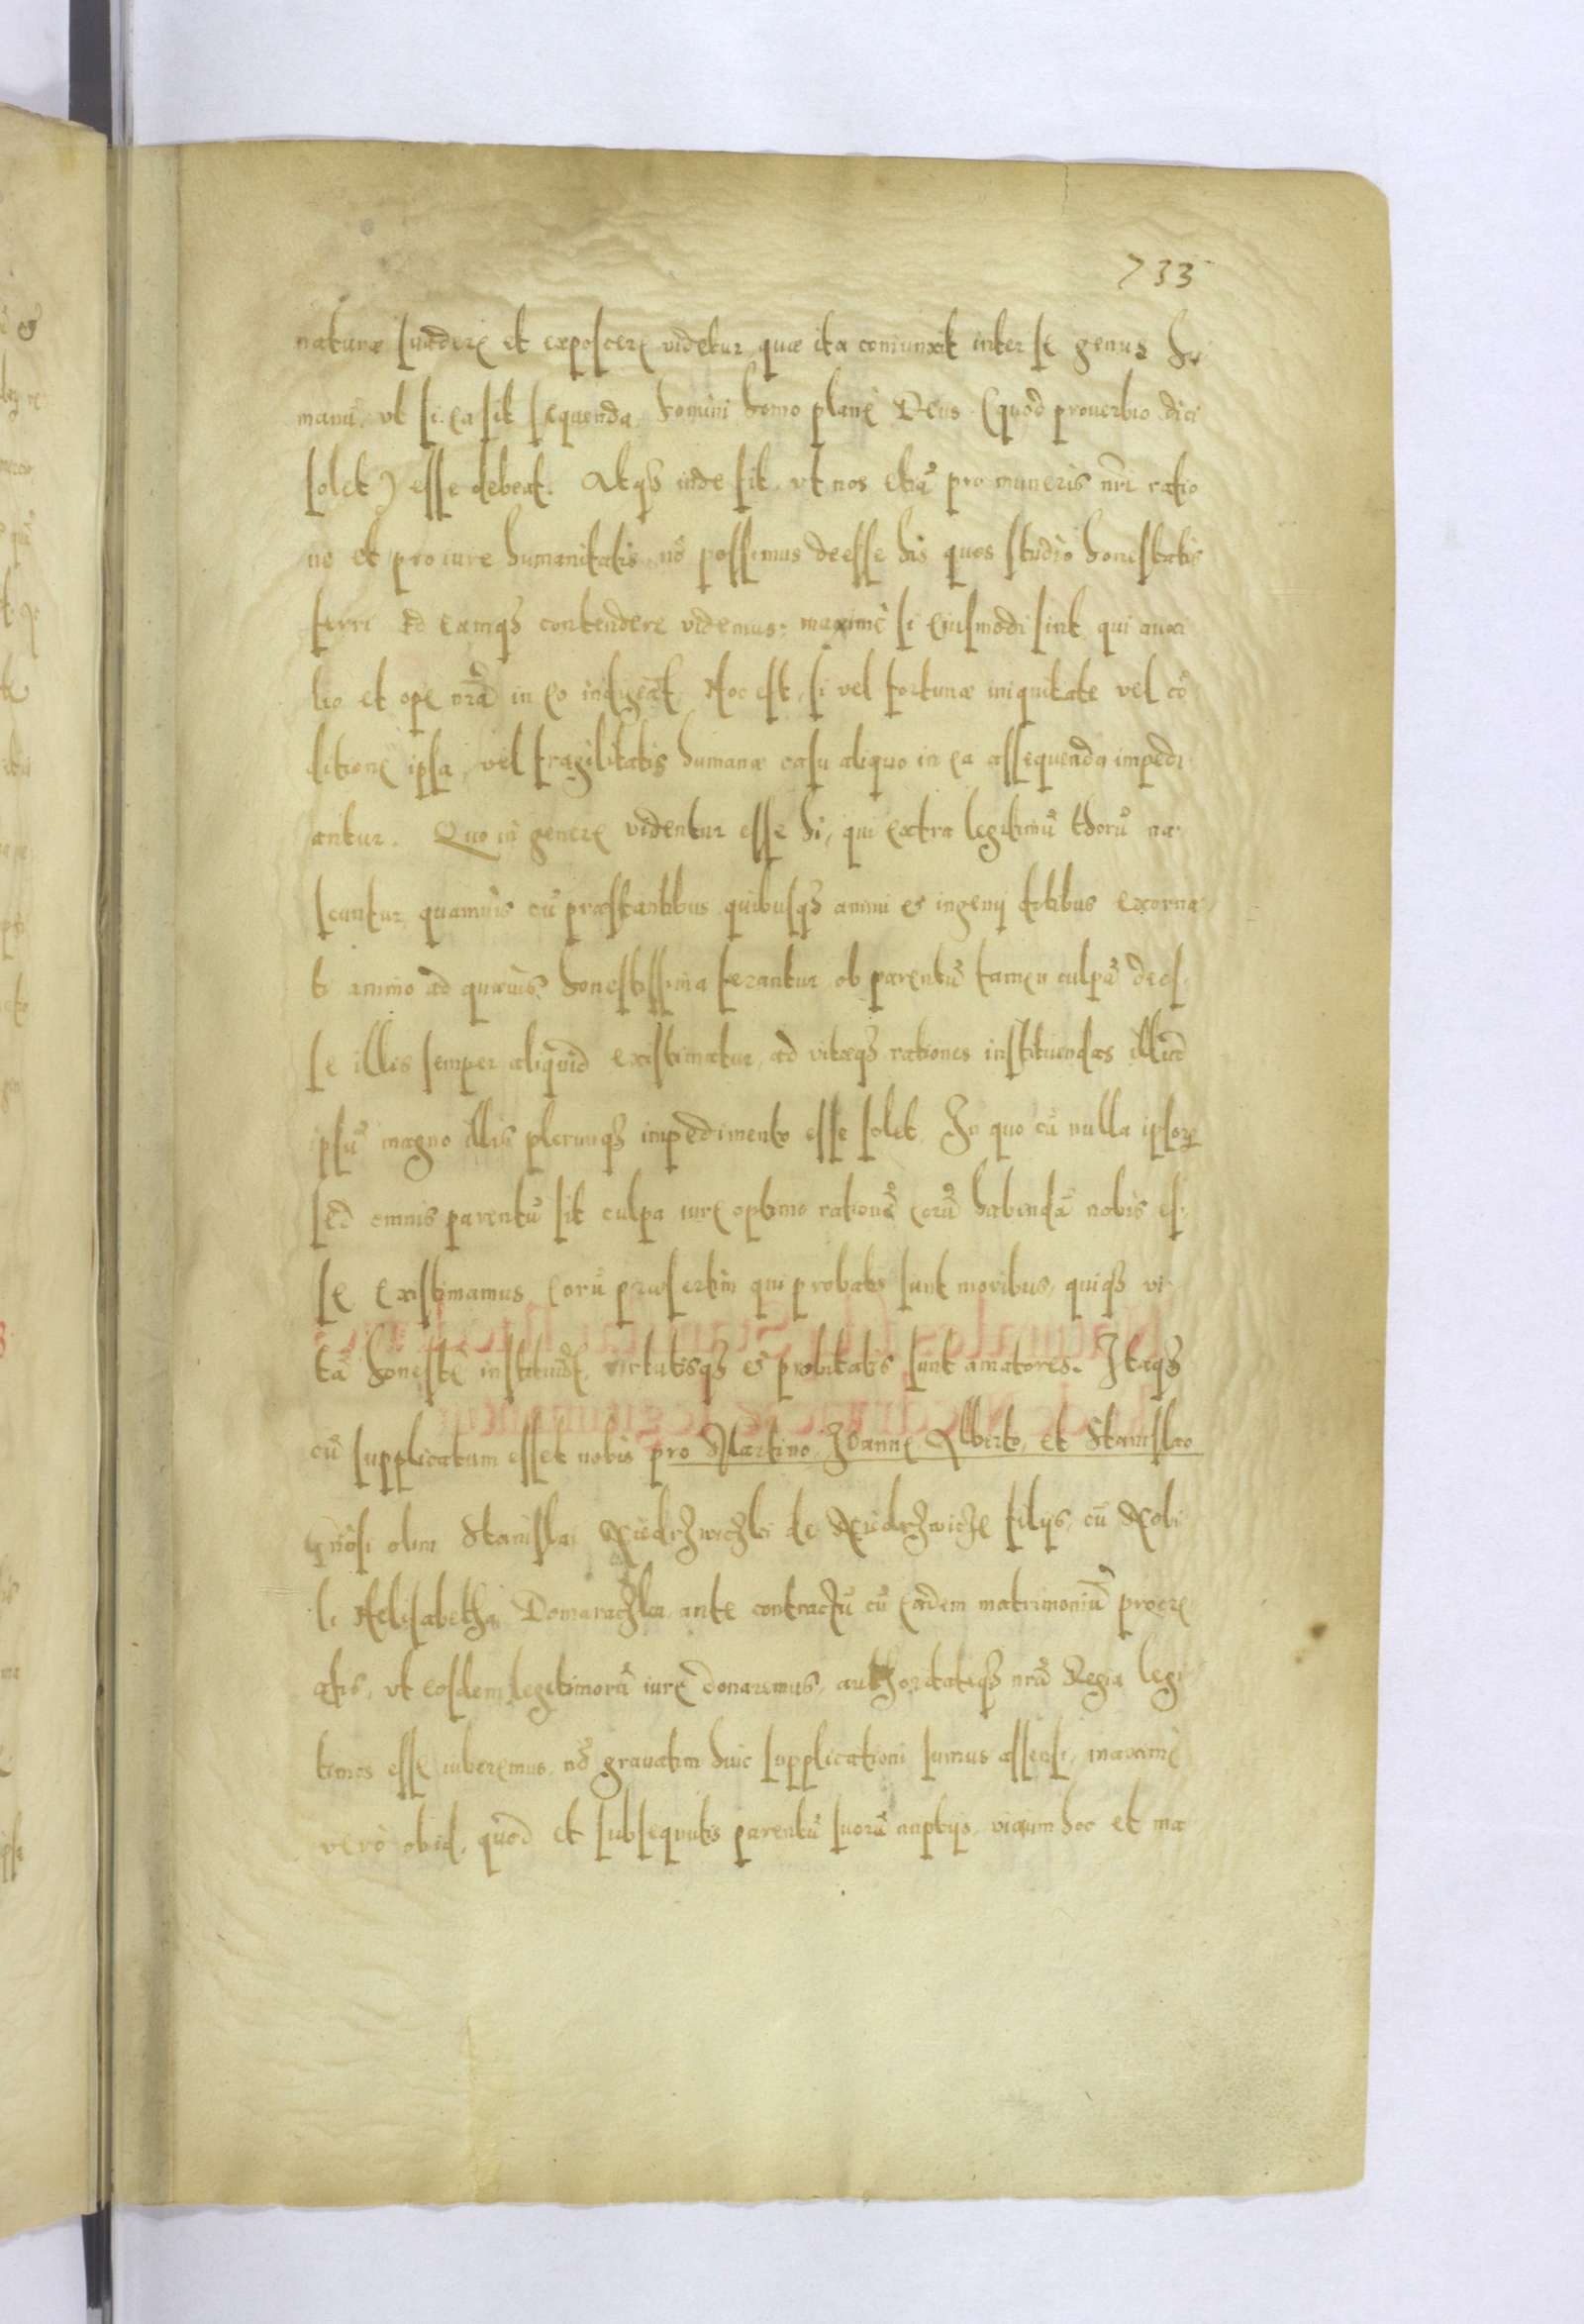 733
naturæ suadere et exposcere videtur, quæ ita coniunxit inter se genus hu
manũ, vt si ea sit sequenda, homini homo planè Deus (quod prouerbio dici
solet) esse debeat. Atqз inde fit, vt nos etiã pro muneris nr̃i ratio
ne et pro iure humanitatis nõ possimus deesse his quos studio honestatis
ferri ad eamqз contendere videmus: maximè si eiusmodi sint qui auxi
lio et ope nr̃a in eo indigeãt. Hoc est, si vel fortunæ iniquitate vel cõ
ditione ipsa, vel fragilitatis humanæ casu aliquo in ea assequenda impedi
antur. Quo in genere videntur esse hi, qui extra legitimũ thorũ na
scuntur quamuis cũ præstantibus quibusqз animi et ingenij dotibus exorna
ti animo ad quæuis honestissima ferantur ob parentũ tamen culpã dees
se illis semper aliquid existimatur, ad vitæqз rationes instituendas illud
ipsũ magno illis plerunqз impedimento esse solet. In quo cũ nulla ipsoꝝ
sed omnis parentũ sit culpa iure optimo rationẽ eorũ habendã nobis es
se existimamus, eorũ præsertim qui probatis sunt moribus, quiqз vi
tã honestè instituũt, virtutisqз et probitatis sunt amatores. Itaqз
cũ supplicatum esset nobis pro Martino, Ioanne, Alberto, et Stanislao
Gñosi olim Stanislai Niedrzwiczki de Niedrzwicze filijs, cũ Nobi
li Helisabetha Domaraczka ante contractũ cũ eadem matrimoniũ procre
atis, vt eosdem legitimorũ iure donaremus, authoritateqз nr̃a Regia legi
timos esse iuberemus, nõ grauatim huic supplicationi sumus assensi, maximè
verò ob id, quod et subsequutis parentũ suorũ nuptijs, vitium hoc et ma